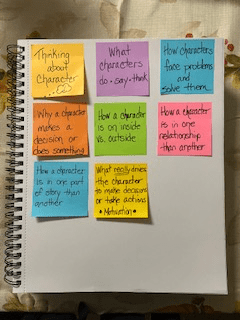 Thinking
about
Character
...
What
characters
do • say • think
How characters
face problems
and
solve them...
Why a character
makes a
decision or
does something
How a character
is on inside
vs. outside
How a character
is in one
relationship
than another
How a character
is in one part
of story than
another
What really drives
the character
to make decisions
or take actions
• Motivation •